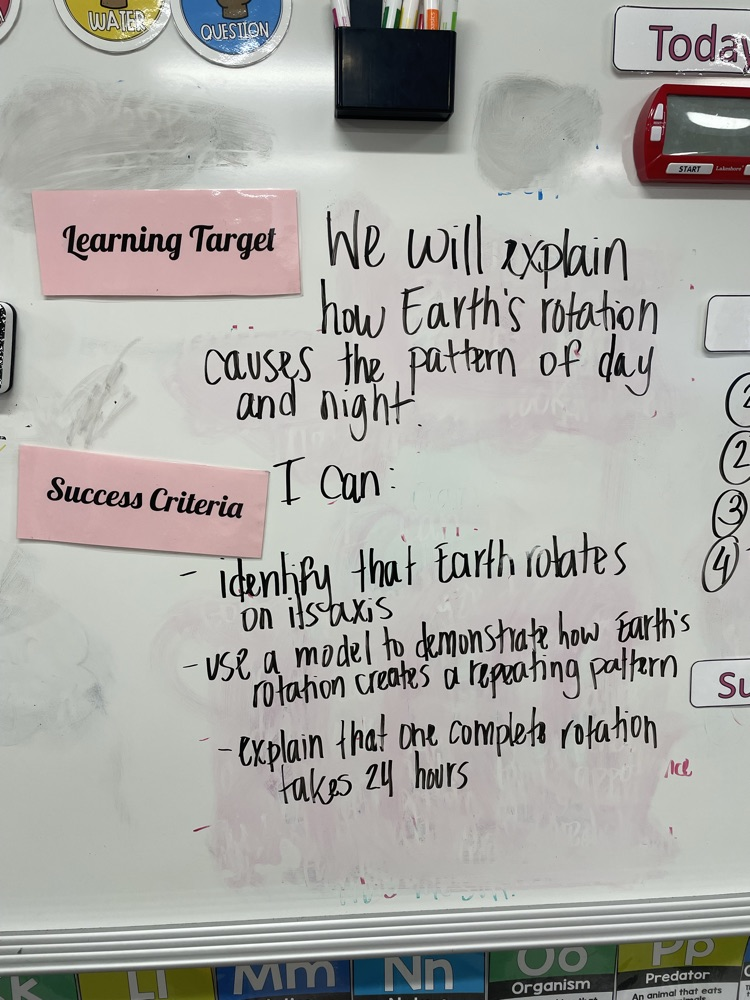 WATER
QUESTION
Today
START Lakeshore
Learning Target
We will explain
how Earth's rotation
causes the pattern of day
and night.
Success Criteria
I can:
- identify that Earth rotates
on its axis
- use a model to demonstrate how Earth's
rotation creates a repeating pattern
- explain that one complete rotation
takes 24 hours
2
2
3
4
Su
k
Ll
Mm
Nn
Oo
Organism
Pp
Predator
An animal that eats